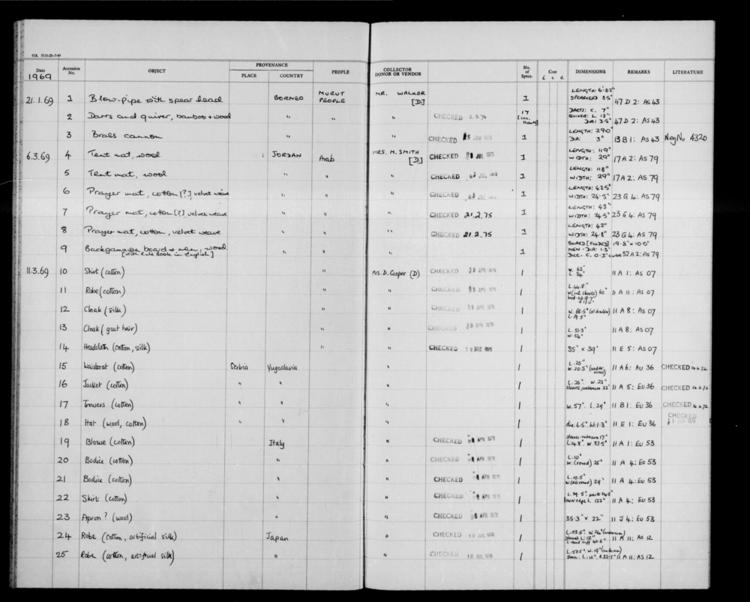 Date
1969
Accession No.
OBJECT
PROVENANCE
PLACE
COUNTRY
PEOPLE
COLLECTOR
DONOR OR VENDOR
No. of Specs.
Cost
£ s. d.
DIMENSIONS
REMARKS
LITERATURE
21.1.69 1 Blow-pipe with spear head BORNEO MURUT PEOPLE MR. WALKER [D] 1 47 D 2: AS 43
2 Darts and quiver, bamboo + wood " " " CHECKED 17 47 D 2: AS 43
3 Brass cannon " " " CHECKED 1 LENGTH: 290" DIA: 3" 13 B 1: AS 43 Neg No 4320
6.3.69 4 Tent mat, wood JORDAN Arab MRS. M. SMITH [D] CHECKED 1 LENGTH: 119" WIDTH: 29" 17 A 2: AS 79
5 Tent mat, wood " " " CHECKED 1 LENGTH: 118" WIDTH: 29" 17 A 2: AS 79
6 Prayer mat, cotton [?], velvet weave " " " CHECKED 1 WIDTH: 24.5" 23 G 4: AS 79
7 Prayer mat, cotton [?], velvet weave " " " CHECKED 21.2.75 1 LENGTH: 43" WIDTH: 24.5" 23 G 4: AS 79
8 Prayer mat, cotton, velvet weave " " " CHECKED 21.2.75 1 LENGTH: 42" WIDTH: 24.8" 23 G 4: AS 79
9 Backgammon board + men, wood [with rule book in English] " " " 1 52 A 2: AS 79
11.3.69 10 Shirt (cotton) " Ms. D. Cooper (D) CHECKED 1 11 A 1: AS 07
11 Robe (cotton) " " CHECKED 1 A 11: AS 07
12 Cloak (silk) " " CHECKED 1 11 A 8: AS 07
13 Cloak (goat hair) " " CHECKED 1 11 A 8: AS 07
14 Headcloth (cotton, silk) " " CHECKED 1 35" x 39" 11 E 5: AS 07
15 Waistcoat (cotton) Serbia Yugoslavia " 1 L. 25" 11 A 6: Au 36 CHECKED
16 Jacket (cotton) " " " 1 11 A 5: Eu 36 CHECKED
17 Trousers (cotton) " " " 1 W. 57" L. 29" 11 B 1: Eu 36 CHECKED
18 Hat (wool, cotton) " " " 1 11 E 1: Eu 36 CHECKED
19 Blouse (cotton) Italy " CHECKED 1 11 A 1: Eu 53
20 Bodice (cotton) " " CHECKED 1 11 A 4: Eu 53
21 Bodice (cotton) " " CHECKED 1 11 A 4: Eu 53
22 Skirt (cotton) " " CHECKED 1 11 A 4: Eu 53
23 Apron? (wool) " " CHECKED 1 35.3" x 22" 11 J 4: Eu 53
24 Robe (cotton, artificial silk) Japan " CHECKED 1 11 A 11: AS 12
25 Robe (cotton, artificial silk) " " CHECKED 1 11 A 11: AS 12